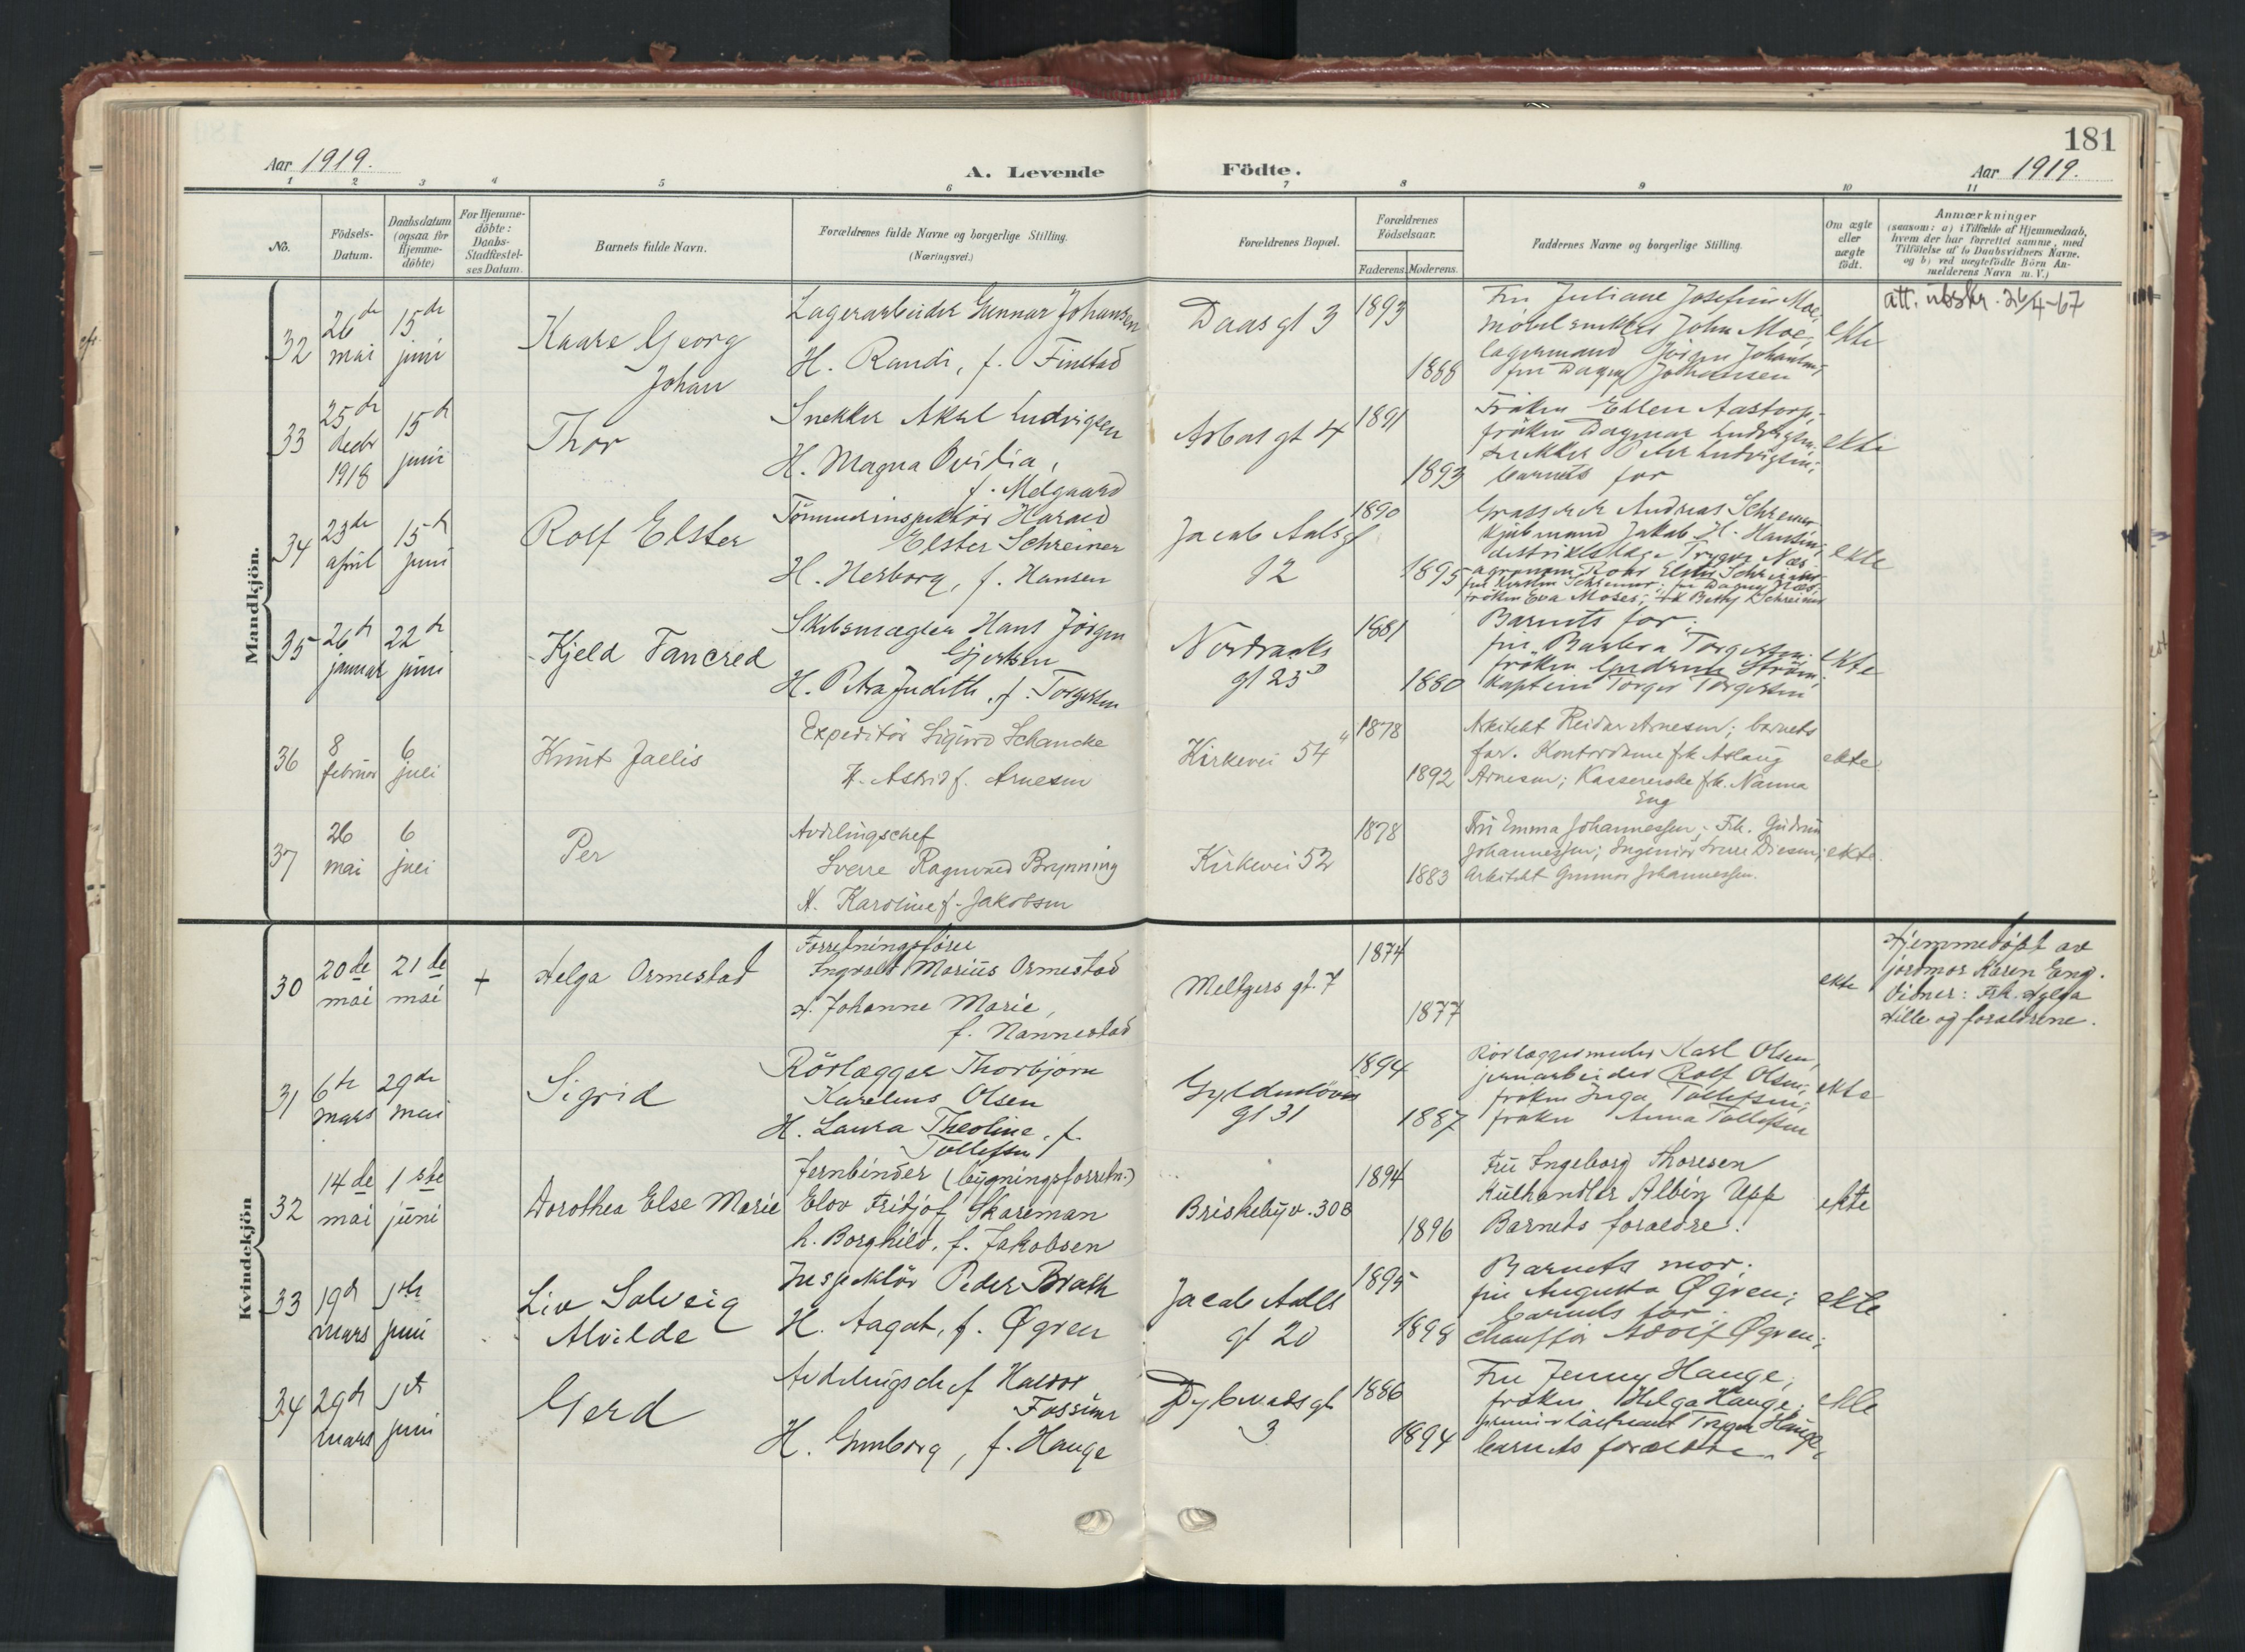 181
Aar 1919.
A. Levende Födte.
Aar 1919.
1 2 3 4 5 6 7 8 9 10 11
No.
Födsels-
Datum.
Daabsdatum
(ogsaa for
Hjemme-
döbte)
For Hjemme-
döbte:
Daabs-
Stadfæstel-
ses Datum.
Barnets fulde Navn.
Forældrenes fulde Navne og borgerlige Stilling.
(Næringsvei.)
Forældrenes Bopæl.
Forældrenes
Födselsaar.
Faderens. Moderens.
Faddernes Navne og borgerlige Stilling.
Om ægte
eller
uægte
födt.
Anmærkninger
(saasom: a) i Tilfælde af Hjemmedaab,
hvem der har forrettet samme, med
Tilföielse af to Daabsvidners Navne.
og b) ved uægtefödte Börn An-
melderens Navn m. V.)
Mandkjön.
32
26de
mai
15de
juni
Kaare Georg
Johan
Lagerarbeider Gunnar Johansen
H. Randi, f. Finstad
Daasgt 3
1893
1888
Fru Juliane Josefine Moe,
møbelsnekker John Moe,
lagermand Jörgen Johansen,
fru Dagny Johansen
ekte
att. utskr. 26/4-67
33
25de
decbr
1918
15de
juni
Thor
Snekker Aksel Ludvigsen
H. Magna Ovidia,
f. Melgaard
Arbosgt 4
1891
1893
Fröken Ellen Aastorp,
fröken Dagmar Ludvigsen,
snekker Peter Ludvigsen,
barnets far
ekte
34
23de
april
15de
juni
Rolf Elster
Tömmerinspektör Harald
Elster Schreiner
H. Herborg, f. Hansen
Jacob Aalsgt
12
1890
1895
Grosserer Andreas Schreiner
Kjöbmand Jakob H. Hansen,
distriktslæge Trygve Næs
agronom Roar Elster Schreiner
fru Kirsten Schreiner; fru Dagny Næs,
fröken Eva Moses; frk Betty Schreiner
ekte
35
26de
januar
22de
juni
Kjeld Tancred
Skibsmægler Hans Jörgen
Gjertsen
H. Petra Judith, f. Torgersen
Nordraaks
gt 23D
1881
1880
Barnets far;
fru Barbra Torgersen,
fröken Gudrun Ström,
Kaptein Torger Torgersen
ekte
36
8
februar
6
juli
Knut Jaelis
Expeditör Sigurd Schancke
H. Astrid f. Arnesen
Kirkevei 54"
1878
1892
Arkitekt Reidar Arnesen; barnets
far. Kontordame frk Aslaug
Arnesen; Kassererske frk. Nanna
Eng
ekte
37
26
mai
6
juli
Per
Avdelingschef
Sverre Ragnvald Brynning
H. Karoline f. Jakobsen
Kirkevei 52
1878
1883
Fru Emma Johannessen; Frk. Gudrun
Johannessen; Ingeniör Sverre Diesen;
arkitekt Gunnar Johannessen.
ekte.
Kvindekjön
30
20de
mai
21de
mai
+
Helga Ormestad
Forretningsförer
Ingvald Marius Ormestad
H. Johanne Marie,
f. Nannestad
Meltzers gt. 7
1874
1877
ekte
Hjemmedöpt av
jordmor Karen Eng.
Vidner: Frk. Helga
Hille og foraldrene.
31
6te
mars
29de
mai
Sigrid
Rörlægger Thorbjörn
Karelius Olsen
H. Laura Theoline, f.
Tollefsen
Gyldenlöves
gt 31
1894
1887
Rörlæggermester Karl Olsen,
jernarbeider Rolf Olsen;
fröken Inga Tollefsen;
fröken Anna Tollefsen
ekte
32
14de
mai
1ste
juni
Dorothea Else Marie
Jernbinder (bygningsforretn.)
Elov Fritjof Skareman
h. Borghild, f. Jakobsen
Briskebyv. 30B
1894
1896
Fru Ingeborg Thoresen
Kulhandler Albin Upp
Barnets foraldre.
ekte
33
19de
mars
1ste
juni
Liv Solveig
Alvilde
Inspektör Peder Brath
H. Aagot, f. Øgren
Jacob Aalls
gt 20
1895
1898
Barnets mor;
fru Augusta Øgren;
barnets far.
chauffør Adolf Øgren;
ekte
34
29de
mars
1ste
juni
Gerd
Avdelingschef Halvor
Fossum
H. Gunborg, f. Hauge
Dybwadsgt
3
1886
1894
Fru Jenny Hauge,
fröken Helga Hauge,
premierløitnant Trygve Hauge,
barnets forældre
ekte